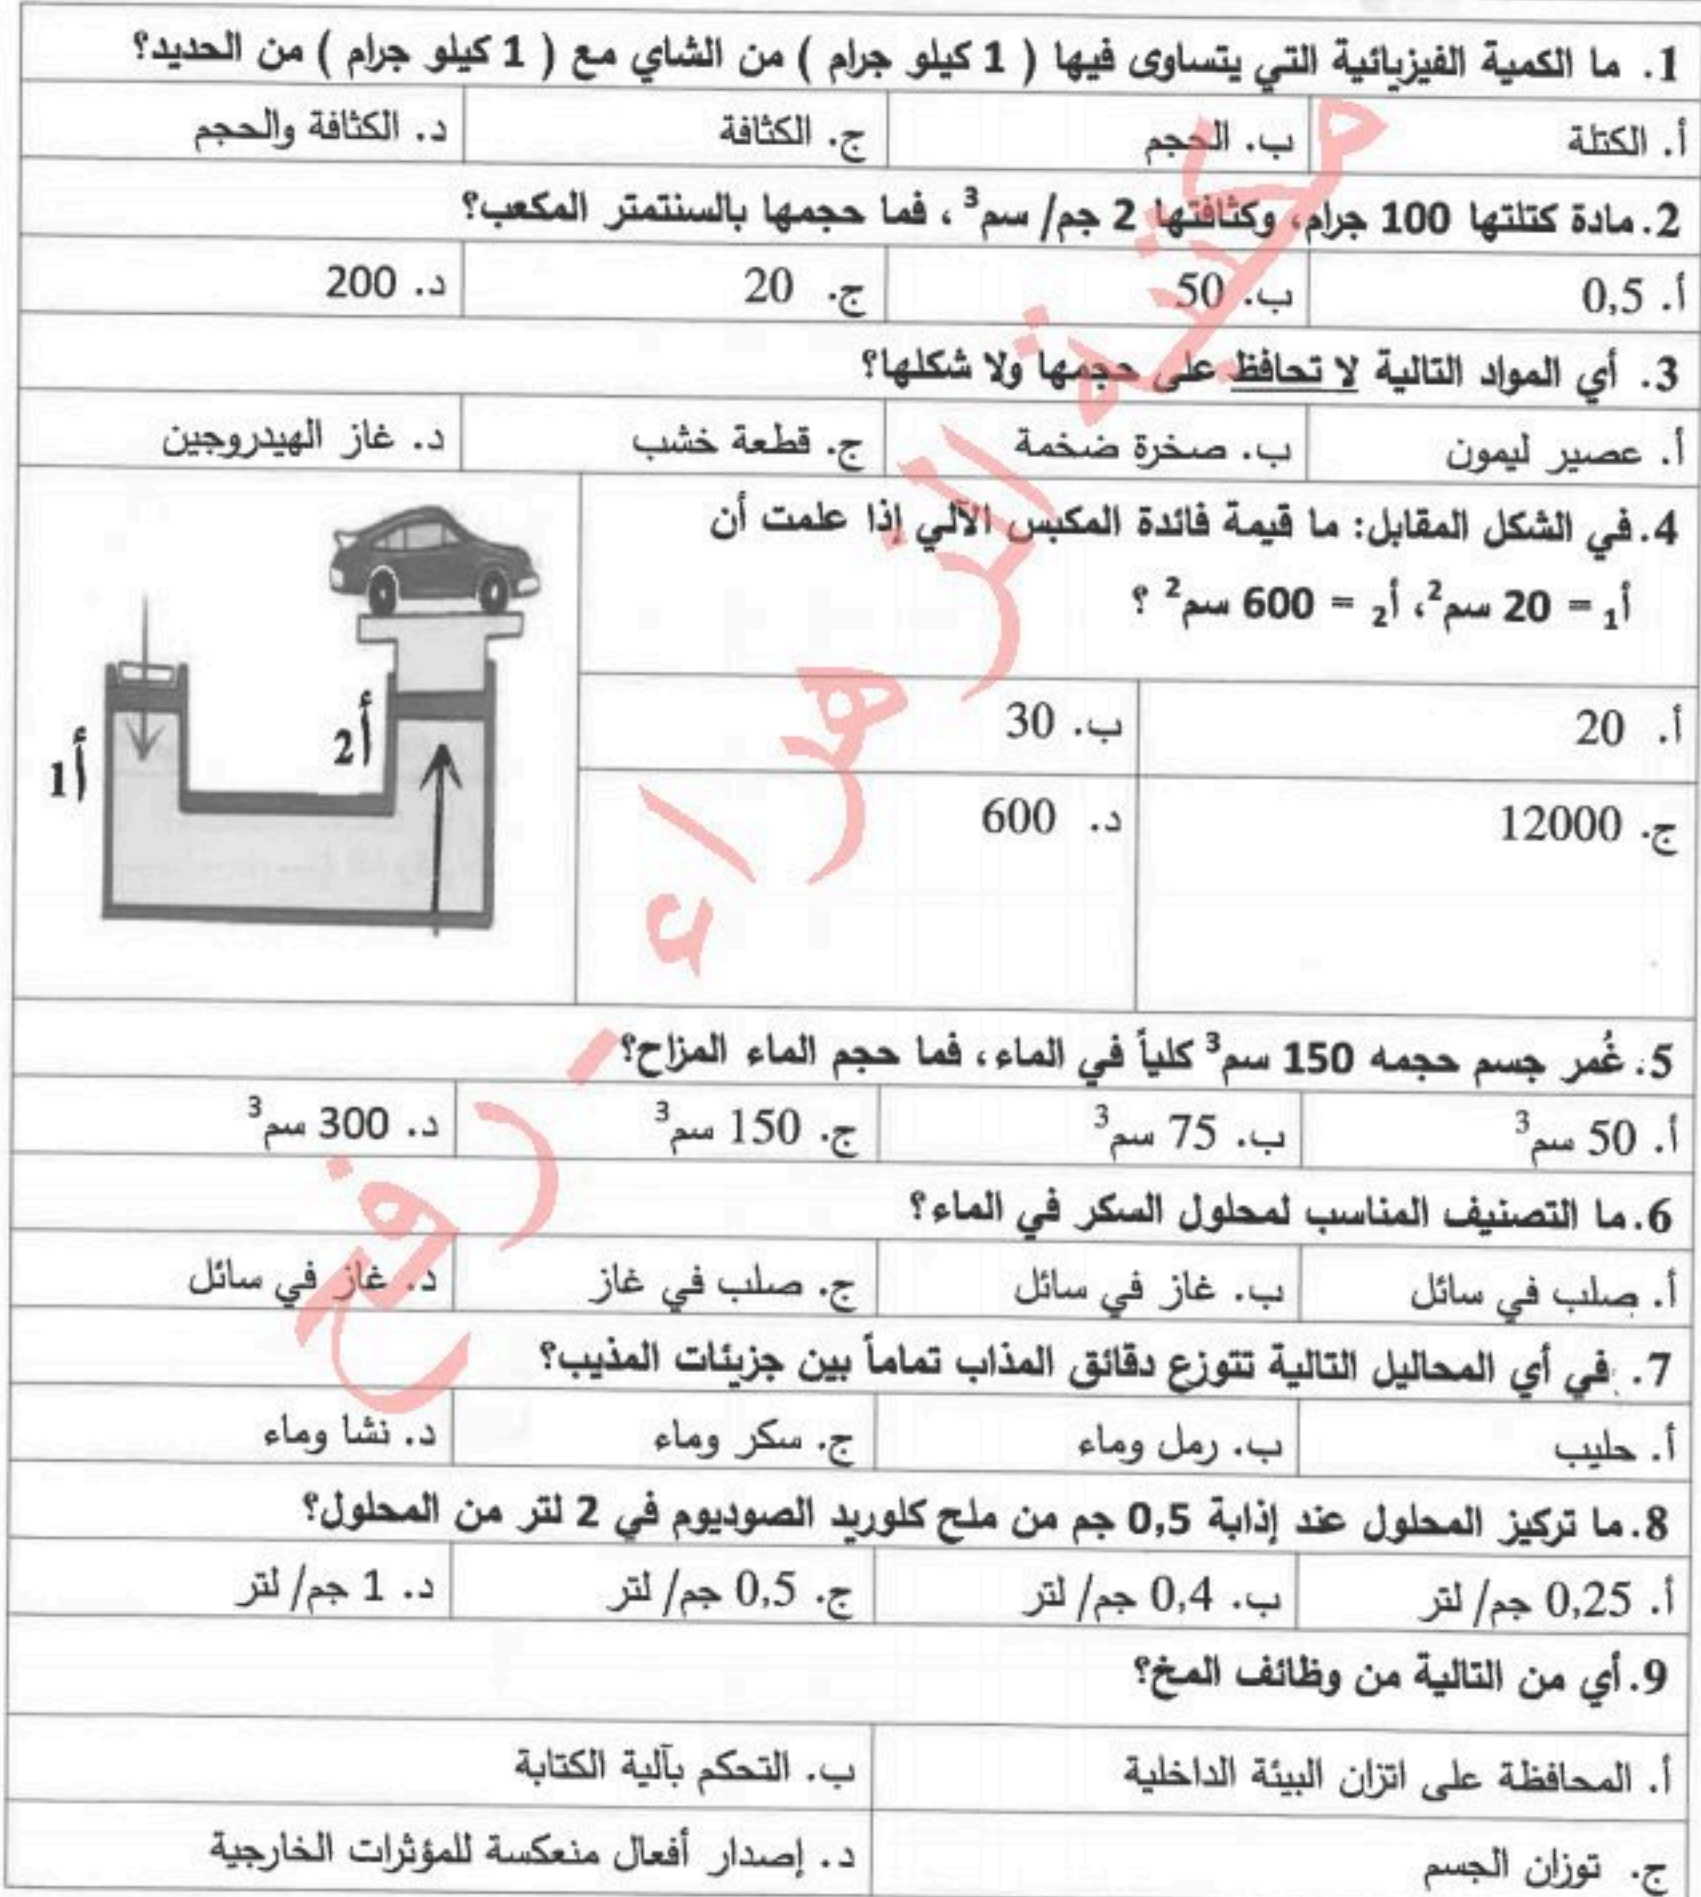 1. ما الكمية الفيزيائية التي يتساوى فيها ( 1 كيلو جرام ) من الشاي مع ( 1 كيلو جرام ) من الحديد؟
أ. الكتلة ب. الحجم ج. الكثافة د. الكثافة والحجم
2. مادة كتلتها 100 جرام، وكثافتها 2 جم/ سم³ ، فما حجمها بالسنتمتر المكعب؟
أ. 0,5 ب. 50 ج. 20 د. 200
3. أي المواد التالية لا تحافظ على حجمها ولا شكلها؟
أ. عصير ليمون ب. صخرة ضخمة ج. قطعة خشب د. غاز الهيدروجين
4. في الشكل المقابل: ما قيمة فائدة المكبس الآلي إذا علمت أن
أ₁ = 20 سم²، أ₂ = 600 سم² ؟
أ. 20 ب. 30
ج. 12000 د. 600
أ1
أ2
5. غُمر جسم حجمه 150 سم³ كلياً في الماء، فما حجم الماء المزاح؟
أ. 50 سم³ ب. 75 سم³ ج. 150 سم³ د. 300 سم³
6. ما التصنيف المناسب لمحلول السكر في الماء؟
أ. صلب في سائل ب. غاز في سائل ج. صلب في غاز د. غاز في سائل
7. في أي المحاليل التالية تتوزع دقائق المذاب تماماً بين جزيئات المذيب؟
أ. حليب ب. رمل وماء ج. سكر وماء د. نشا وماء
8. ما تركيز المحلول عند إذابة 0,5 جم من ملح كلوريد الصوديوم في 2 لتر من المحلول؟
أ. 0,25 جم/ لتر ب. 0,4 جم/ لتر ج. 0,5 جم/ لتر د. 1 جم/ لتر
9. أي من التالية من وظائف المخ؟
أ. المحافظة على اتزان البيئة الداخلية ب. التحكم بآلية الكتابة
ج. توزان الجسم د. إصدار أفعال منعكسة للمؤثرات الخارجية
مكتبة الزهراء - رفح